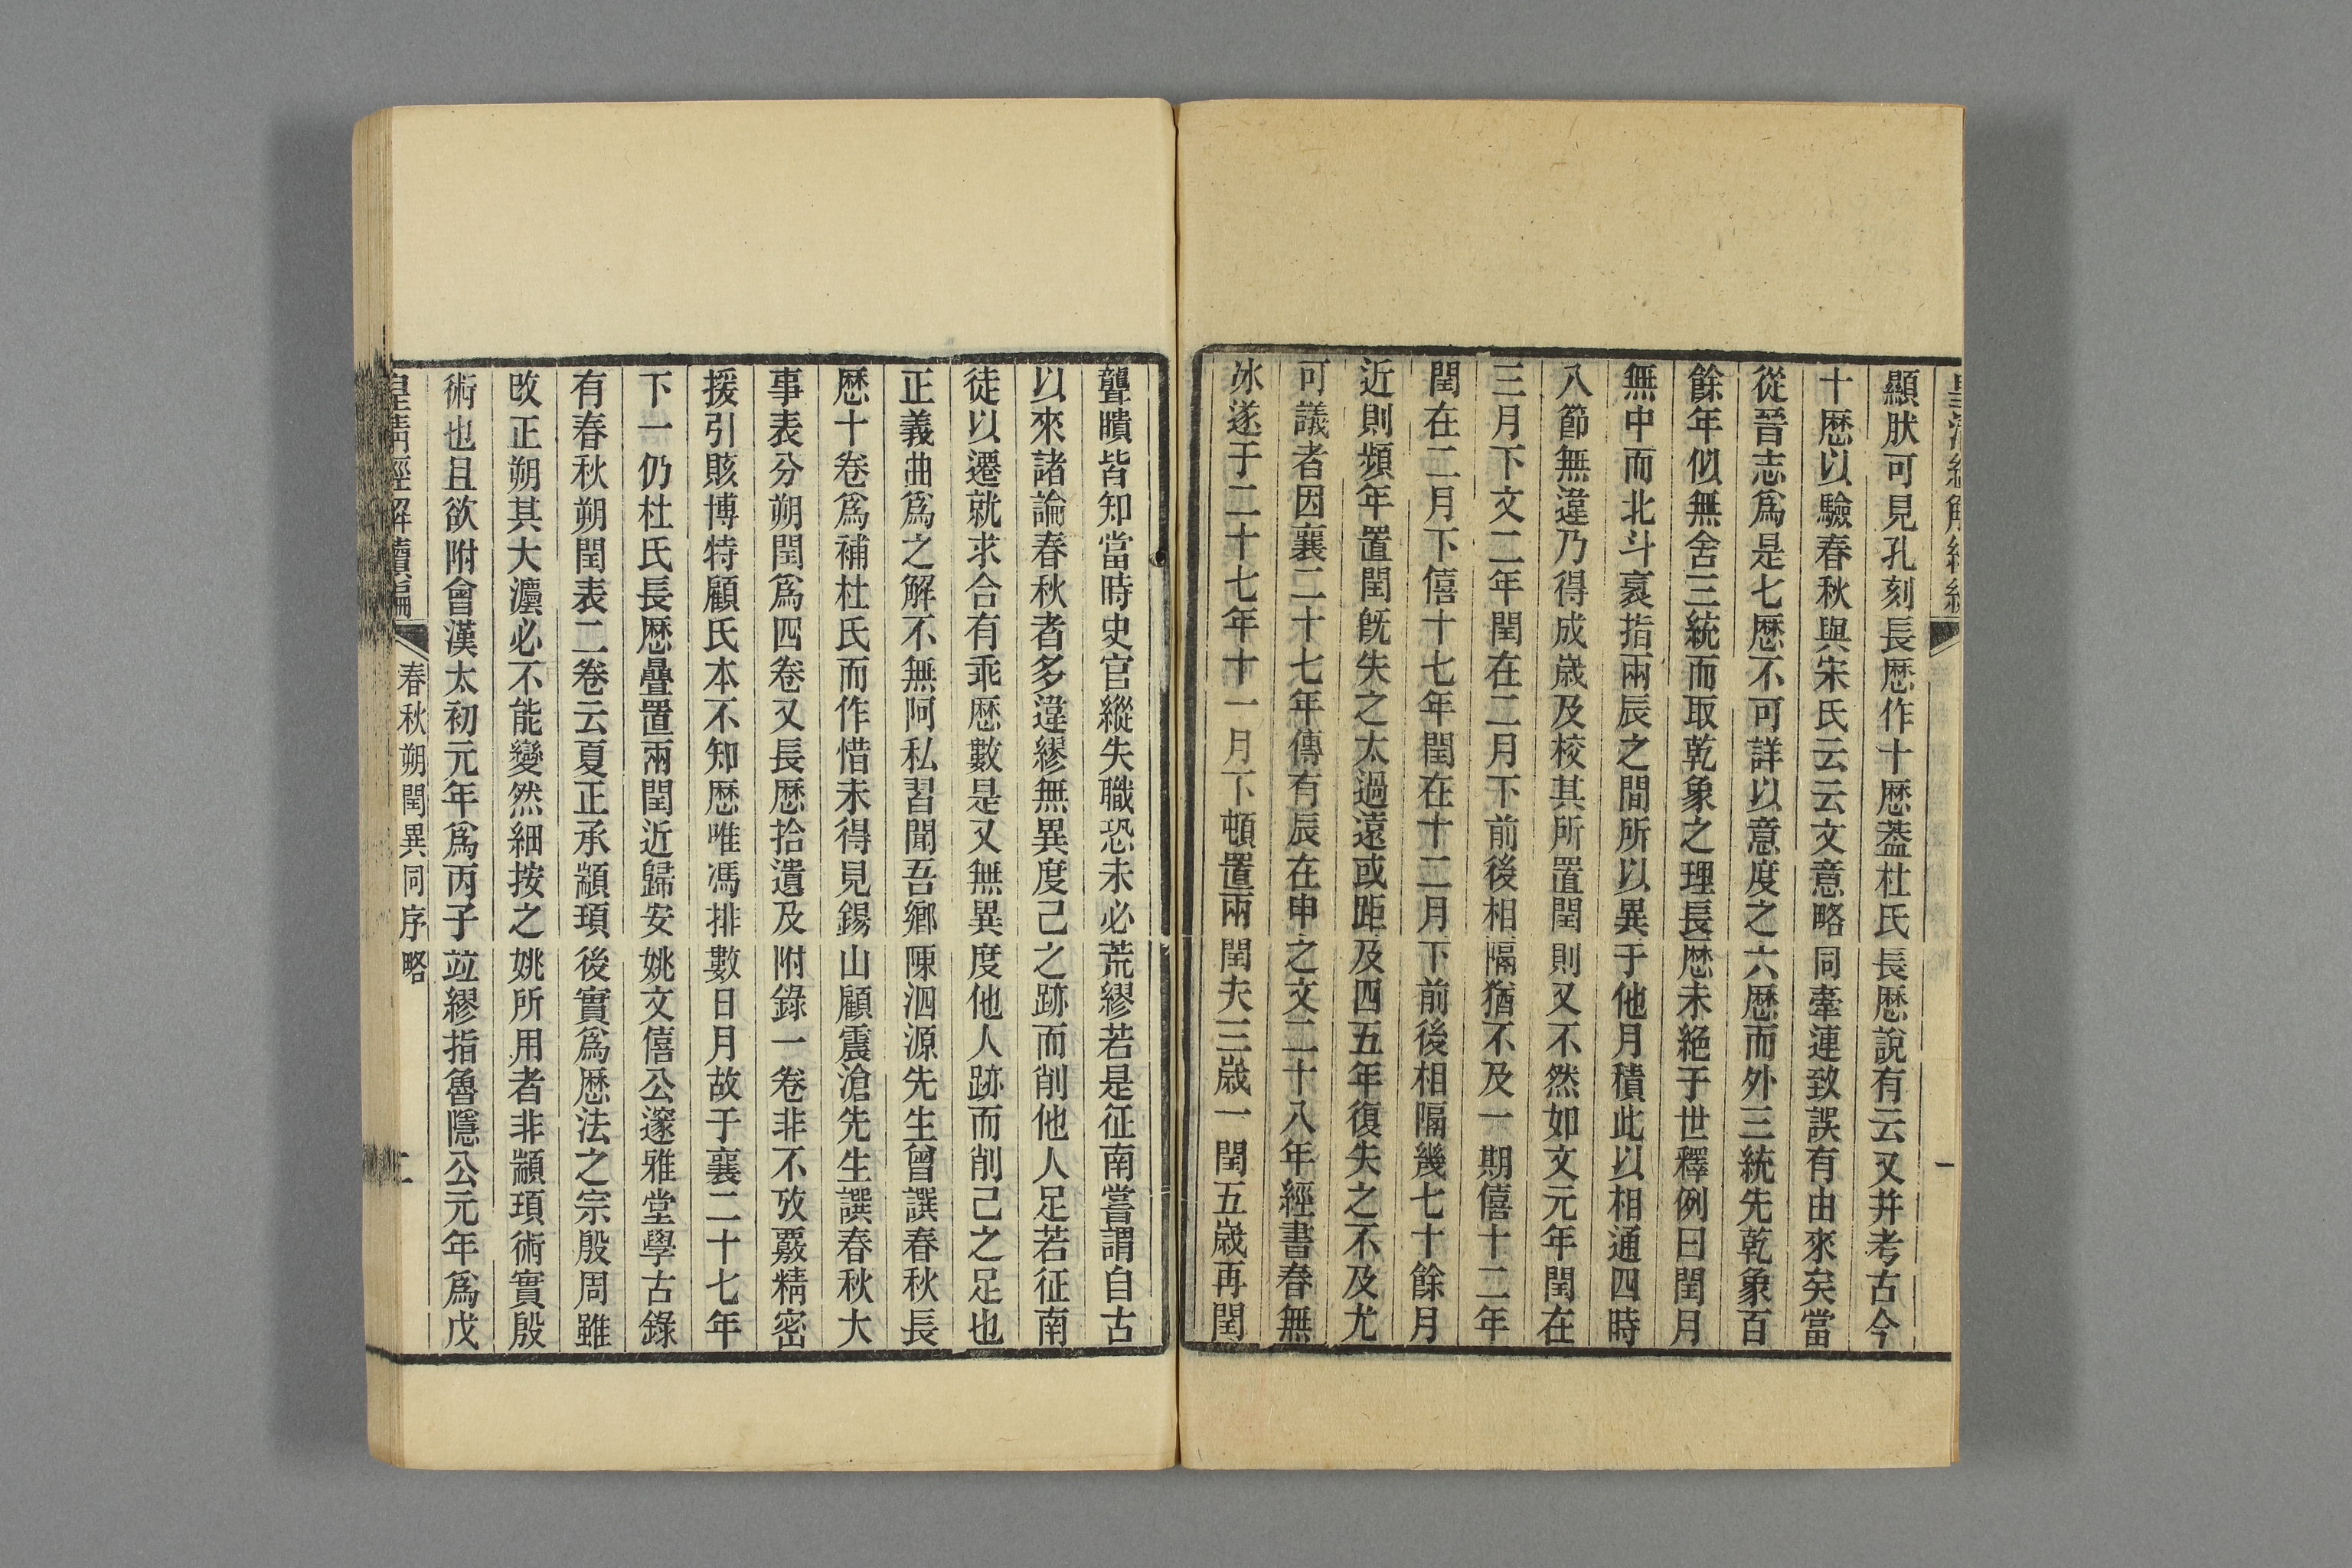 顯肰可見孔刻長厯作十厯葢杜氏長厯說有云又幷考古今
十厯以驗春秋與宋氏云云文意略同牽連致誤有由來矣當
從晉志爲是七厯不可詳以意度之六厯而外三統先乾象百
餘年似無舍三統而取乾象之理長厯未絶于世釋例曰閏月
無中而北斗衺指兩辰之間所以異于他月積此以相通四時
八節無違乃得成歳及校其所置閏則又不然如文元年閏在
三月下文二年閏在二月下前後相隔猶不及一期僖十二年
閏在二月下僖十七年閏在十二月下前後相隔幾七十餘月
近則頻年置閏旣失之太過遠或距及四五年復失之不及尤
可議者因襄二十七年傳有辰在申之文二十八年經書春無
冰遂于二十七年十一月下頓置兩閏夫三歳一閏五歳再閏
聾瞶皆知當時史官縱失職恐未必荒繆若是征南嘗謂自古
以來諸論春秋者多違繆無異度己之跡而削他人足若征南
徒以遷就求合有乖厯數是又無異度他人跡而削己之足也
正義曲爲之解不無阿私習聞吾鄉陳泗源先生曾譔春秋長
厯十卷爲補杜氏而作惜未得見錫山顧震滄先生譔春秋大
事表分朔閏爲四卷又長厯拾遺及附錄一卷非不攷覈精密
援引賅博特顧氏本不知厯唯馮排數日月故于襄二十七年
下一仍杜氏長厯疊置兩閏近歸安姚文僖公邃雅堂學古錄
有春秋朔閏表二卷云夏正承顓頊後實爲厯法之宗殷周雖
改正朔其大灋必不能變然細按之姚所用者非顓頊術實殷
術也且欲附會漢太初元年爲丙子竝繆指魯隱公元年爲戊
皇清經解續編
春秋朔閏異同序略
二